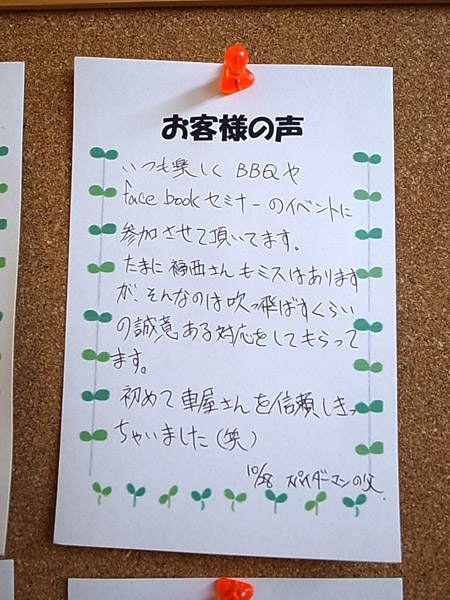 お客様の声
いつも楽しく BBQや
face bookセミナーのイベントに
参加させて頂いてます。
たまに福西さんもミスはあります
が、そんなのは吹っ飛ばすくらい
の誠意ある対応をしてもらって
ます。
初めて車屋さんを信頼しきっ
ちゃいました(笑)
10/28 スパイダーマンの父